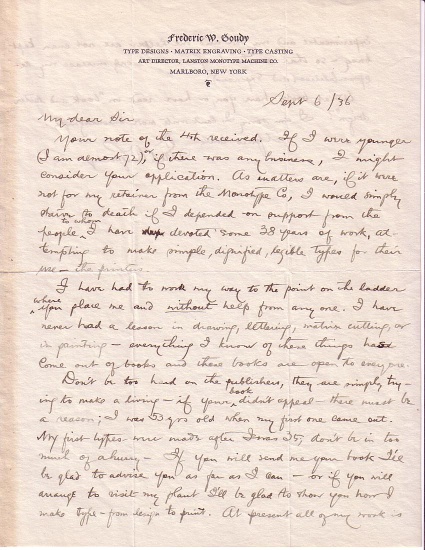 Frederic W. Goudy
TYPE DESIGNS · MATRIX ENGRAVING · TYPE CASTING
ART DIRECTOR, LANSTON MONOTYPE MACHINE CO.
MARLBORO, NEW YORK
Sept 6/36
My dear Sir
Your note of the 4th received. If I were younger
(I am almost 72), or if there was any business, I might
consider your application. As matters are, if it were
not for my retainer from the Monotype Co, I would simply
starve to death if I depended on support from the
people to whom I have devoted some 38 years of work, at-
tempting to make simple, dignified, legible types for their
use — the printers
I have had to work my way to the point on the ladder
where you place me and without help from any one. I have
never had a lesson in drawing, lettering, matrix cutting, or
in printing — everything I know of these things has
come out of books and these books are open to everyone.
Don't be too hard on the publishers, they are simply try-
ing to make a living — if your book didn't appeal — there must be
a reason; I was 53 yrs old when my first one came out.
My first types were made after I was 35, don't be in too
much of a hurry — If you will send me your book I'll
be glad to advise you as far as I can — or if you will
arrange to visit my plant I'll be glad to show you how I
make type — from design to print. At present all of my work is